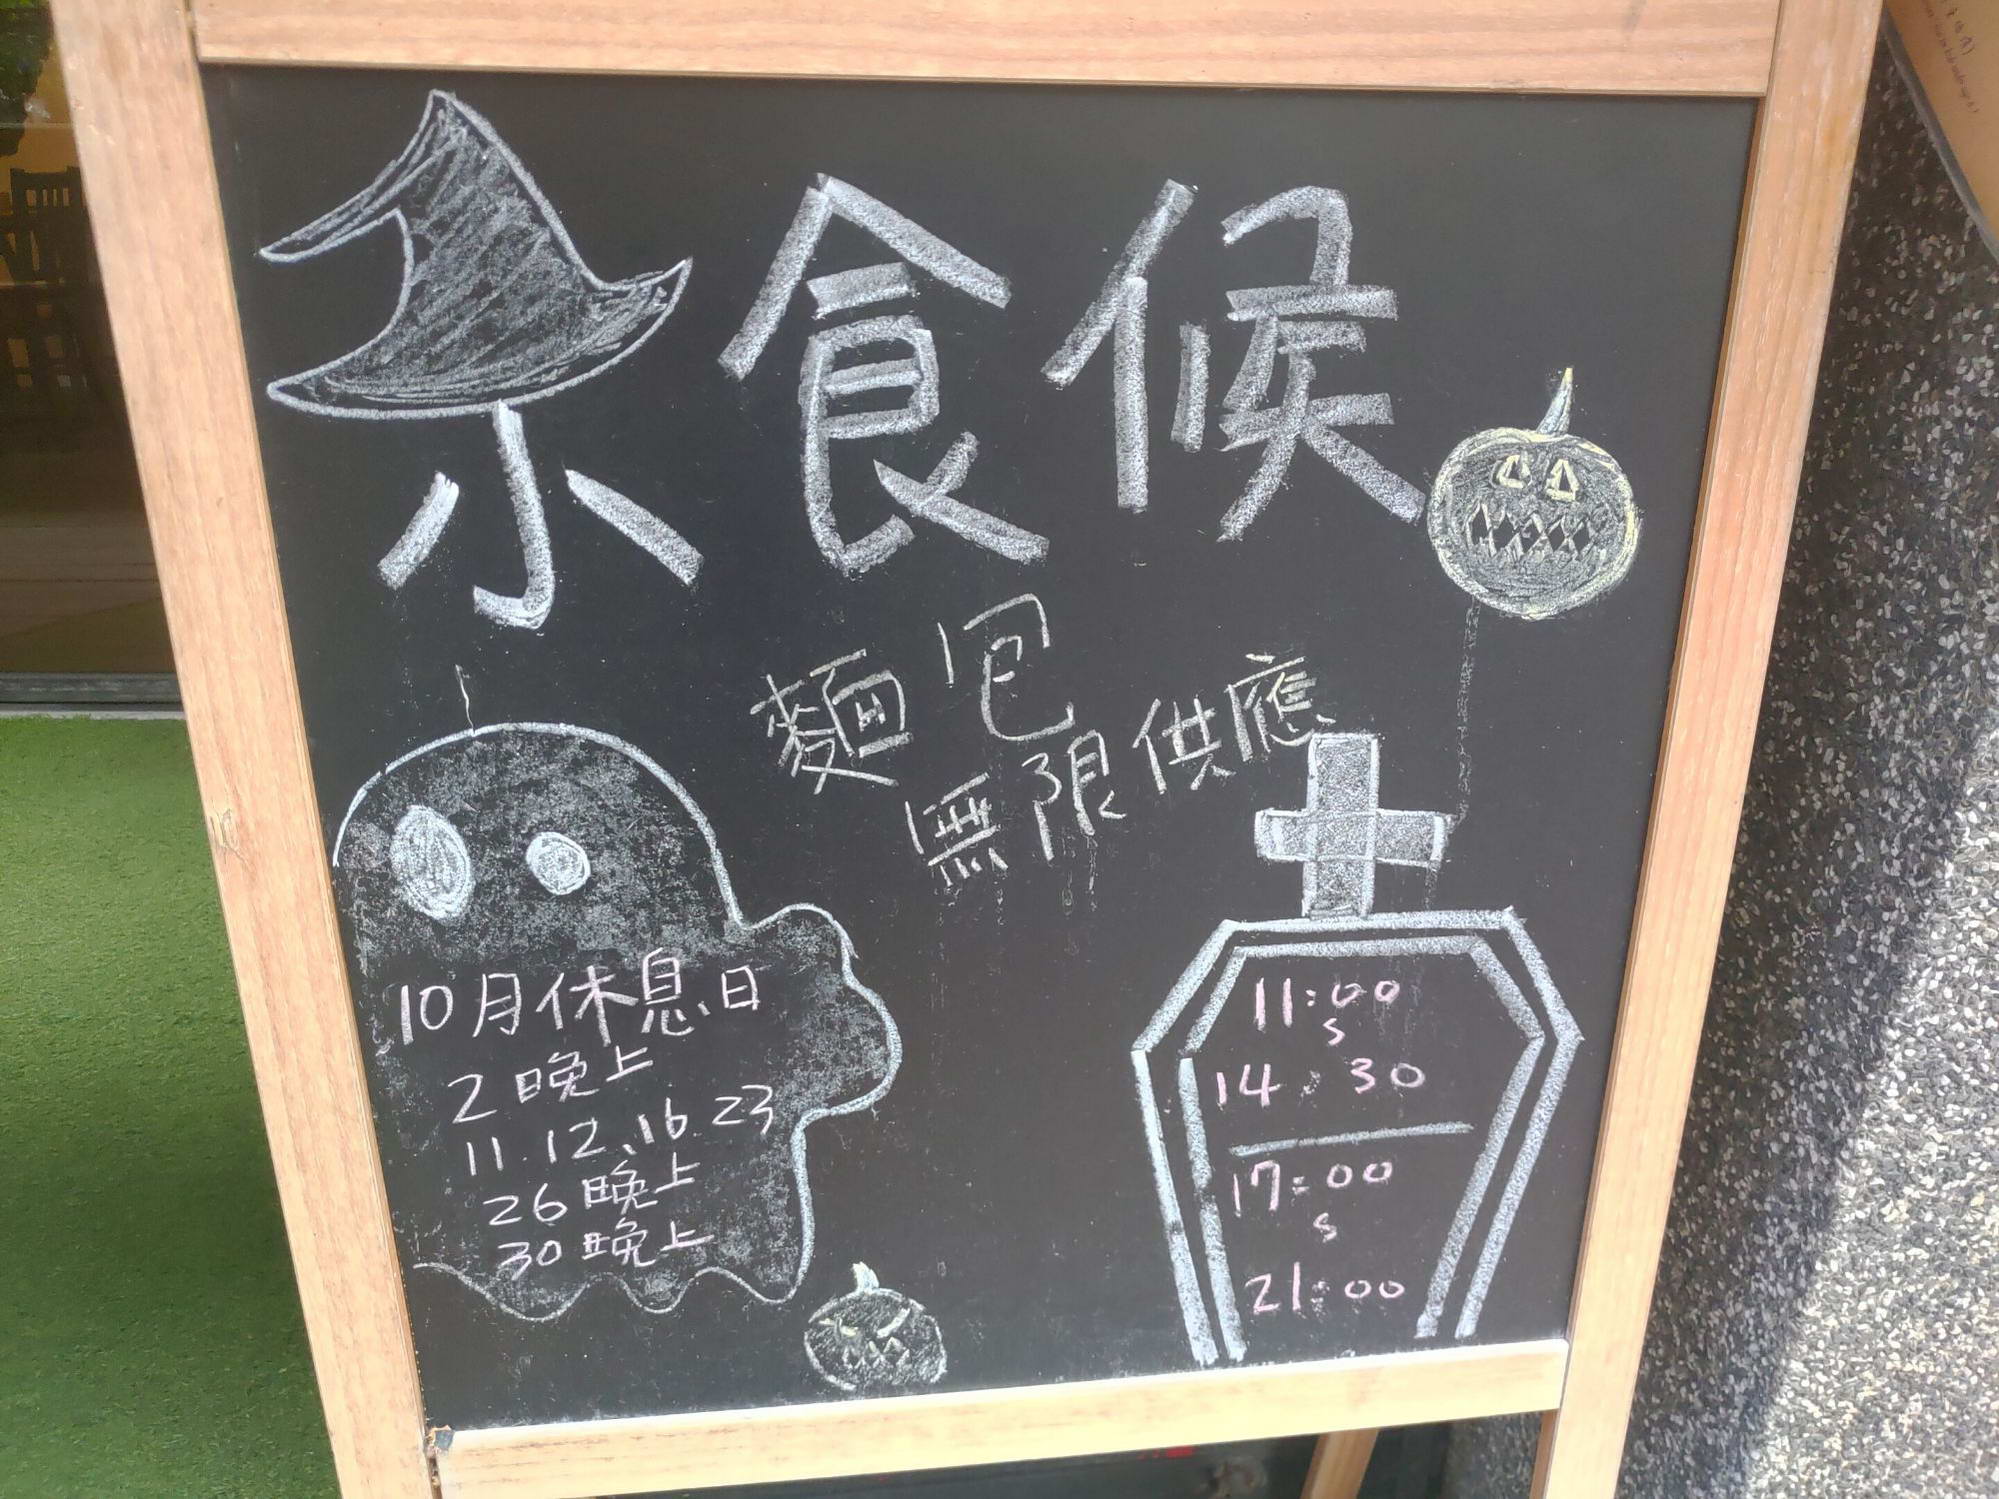 小食候
麵包
無限供應
10月休息日
2晚上
11.12、16.23
26晚上
30晚上
11:00
s
14:30
17:00
s
21:00